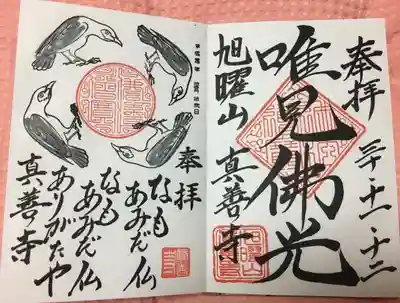 奉拝
三十・十一・十二
唯見佛光
旭曜山 真善寺
奉拝
なも
あみだ仏
なも
あみだ仏
ありがたや
真善寺